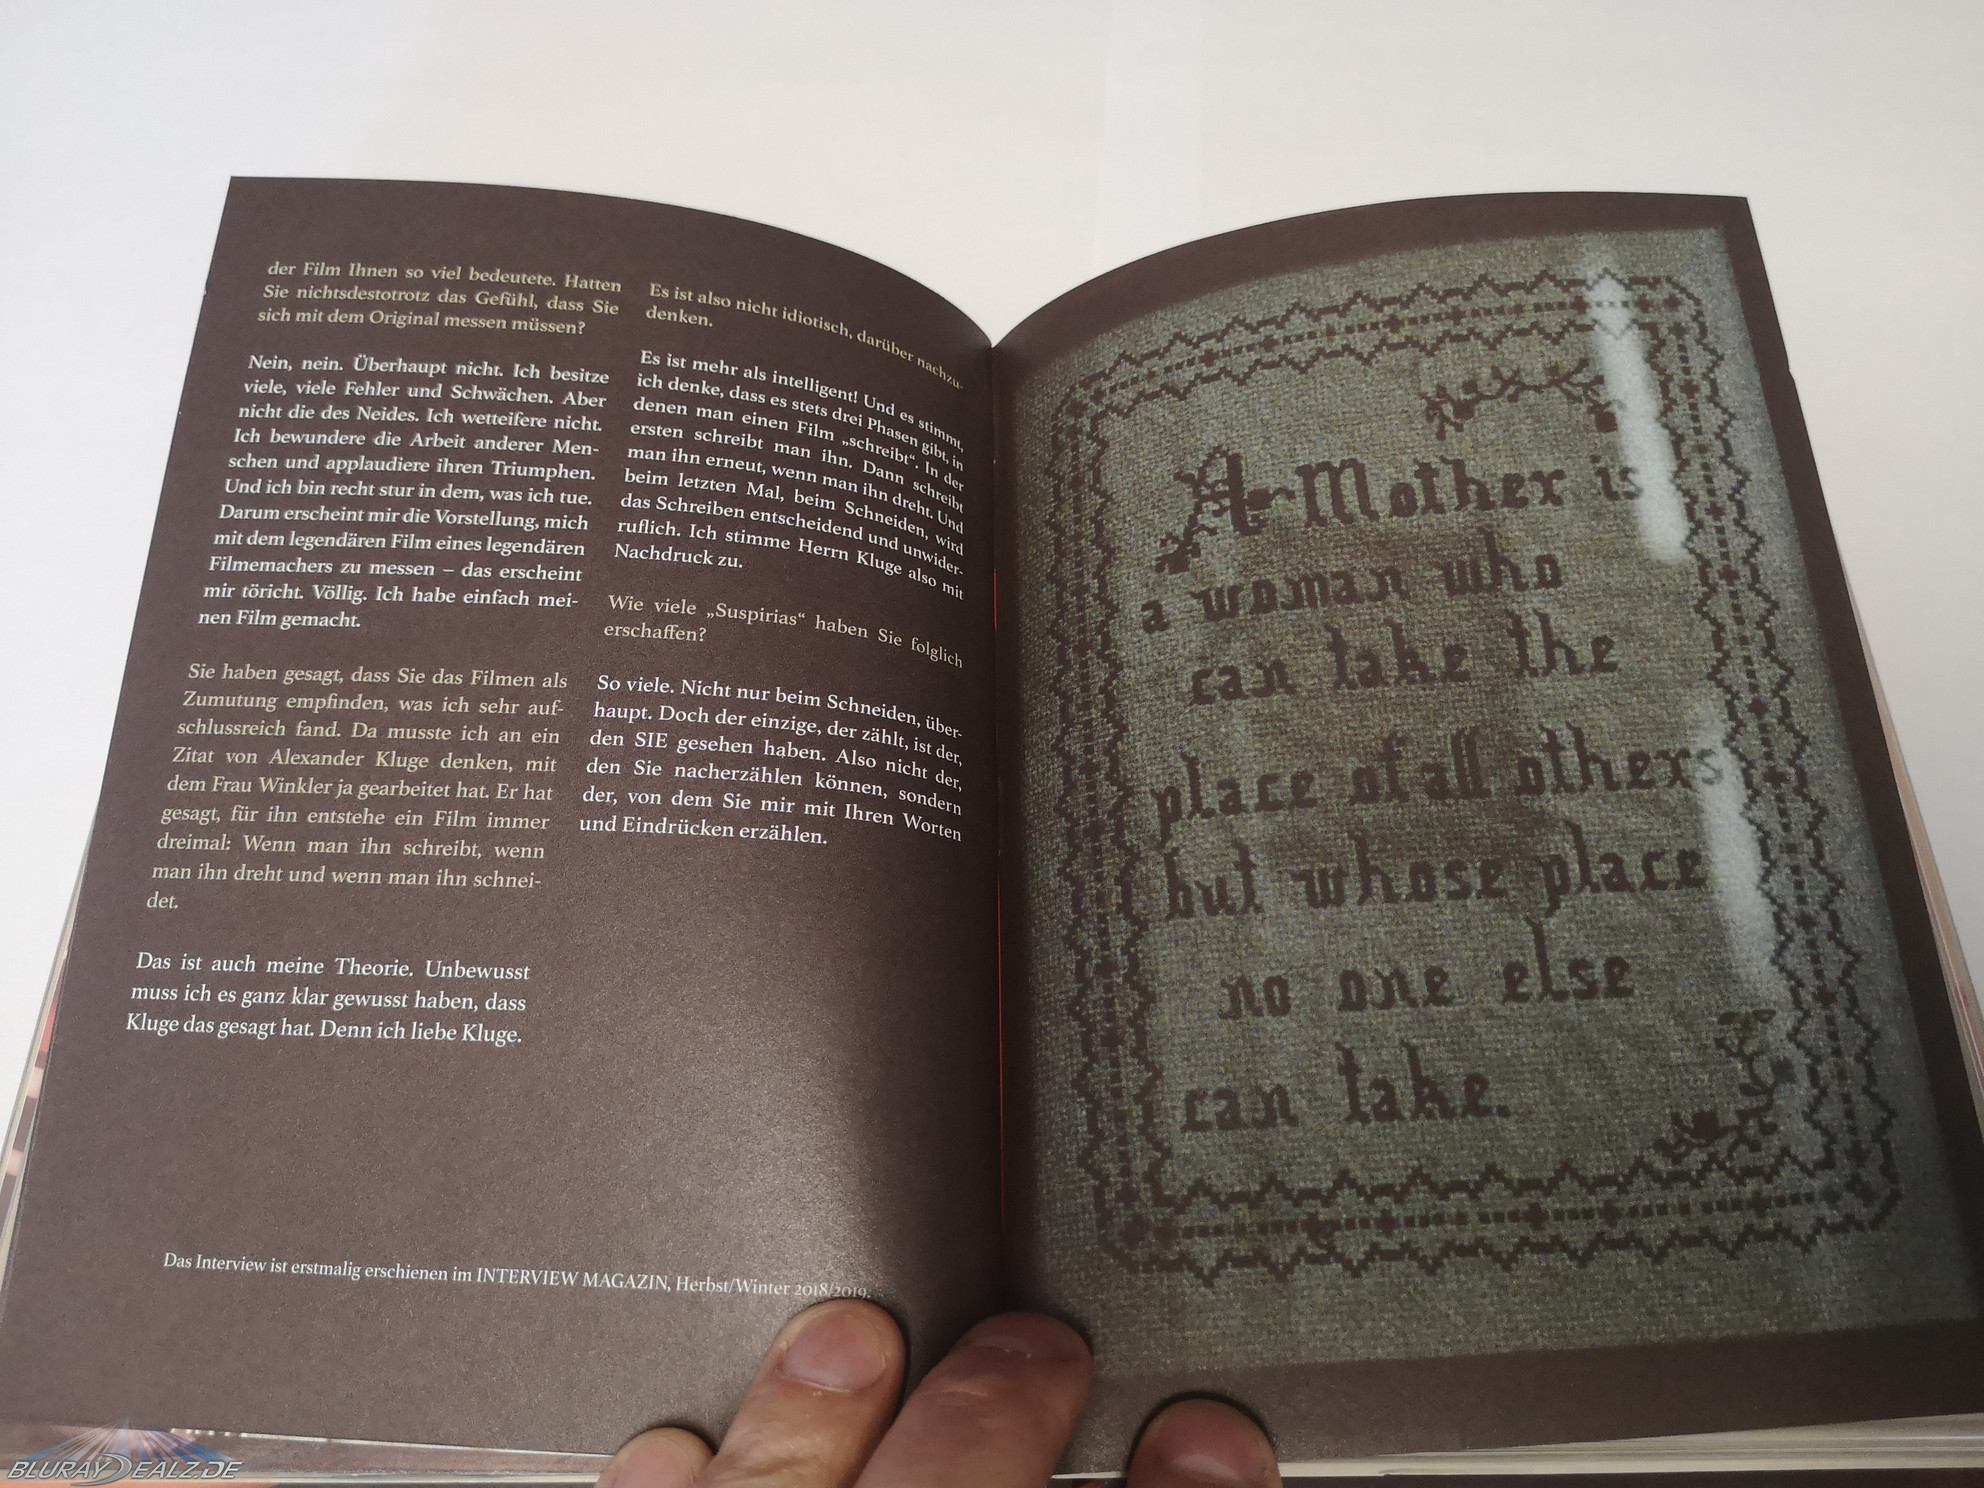 der Film Ihnen so viel bedeutete. Hatten
Sie nichtsdestotrotz das Gefühl, dass Sie
sich mit dem Original messen müssen?
Nein, nein. Überhaupt nicht. Ich besitze
viele, viele Fehler und Schwächen. Aber
nicht die des Neides. Ich wetteifere nicht.
Ich bewundere die Arbeit anderer Men-
schen und applaudiere ihren Triumphen.
Und ich bin recht stur in dem, was ich tue.
Darum erscheint mir die Vorstellung, mich
mit dem legendären Film eines legendären
Filmemachers zu messen – das erscheint
mir töricht. Völlig. Ich habe einfach mei-
nen Film gemacht.
Sie haben gesagt, dass Sie das Filmen als
Zumutung empfinden, was ich sehr auf-
schlussreich fand. Da musste ich an ein
Zitat von Alexander Kluge denken, mit
dem Frau Winkler ja gearbeitet hat. Er hat
gesagt, für ihn entstehe ein Film immer
dreimal: Wenn man ihn schreibt, wenn
man ihn dreht und wenn man ihn schnei-
det.
Das ist auch meine Theorie. Unbewusst
muss ich es ganz klar gewusst haben, dass
Kluge das gesagt hat. Denn ich liebe Kluge.
Es ist also nicht idiotisch, darüber nachzu-
denken.
Es ist mehr als intelligent! Und es stimmt,
ich denke, dass es stets drei Phasen gibt, in
denen man einen Film „schreibt“. In der
ersten schreibt man ihn. Dann schreibt
man ihn erneut, wenn man ihn dreht. Und
beim letzten Mal, beim Schneiden, wird
das Schreiben entscheidend und unwider-
ruflich. Ich stimme Herrn Kluge also mit
Nachdruck zu.
Wie viele „Suspirias“ haben Sie folglich
erschaffen?
So viele. Nicht nur beim Schneiden, über-
haupt. Doch der einzige, der zählt, ist der,
den SIE gesehen haben. Also nicht der,
den Sie nacherzählen können, sondern
der, von dem Sie mir mit Ihren Worten
und Eindrücken erzählen.
Das Interview ist erstmalig erschienen im INTERVIEW MAGAZIN, Herbst/Winter 2018/2019.
A Mother is
a woman who
can take the
place of all others
but whose place
no one else
can take.
BLURAYDEALZ.DE